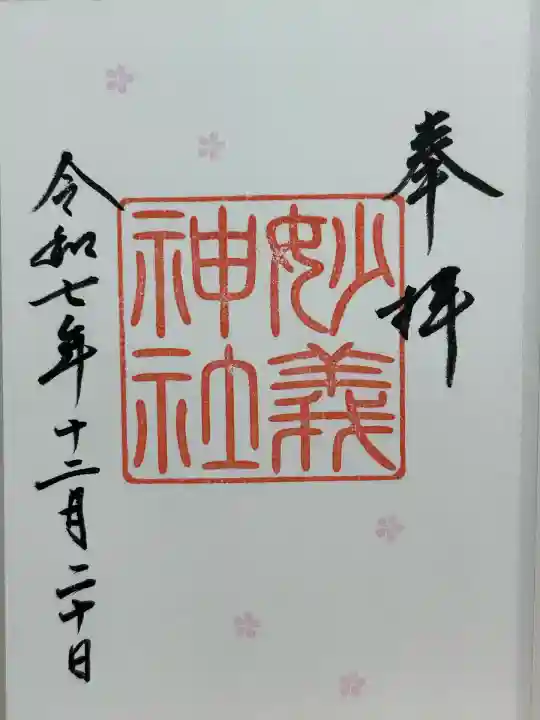 奉拝
妙義
神社
令和七年十二月二十日